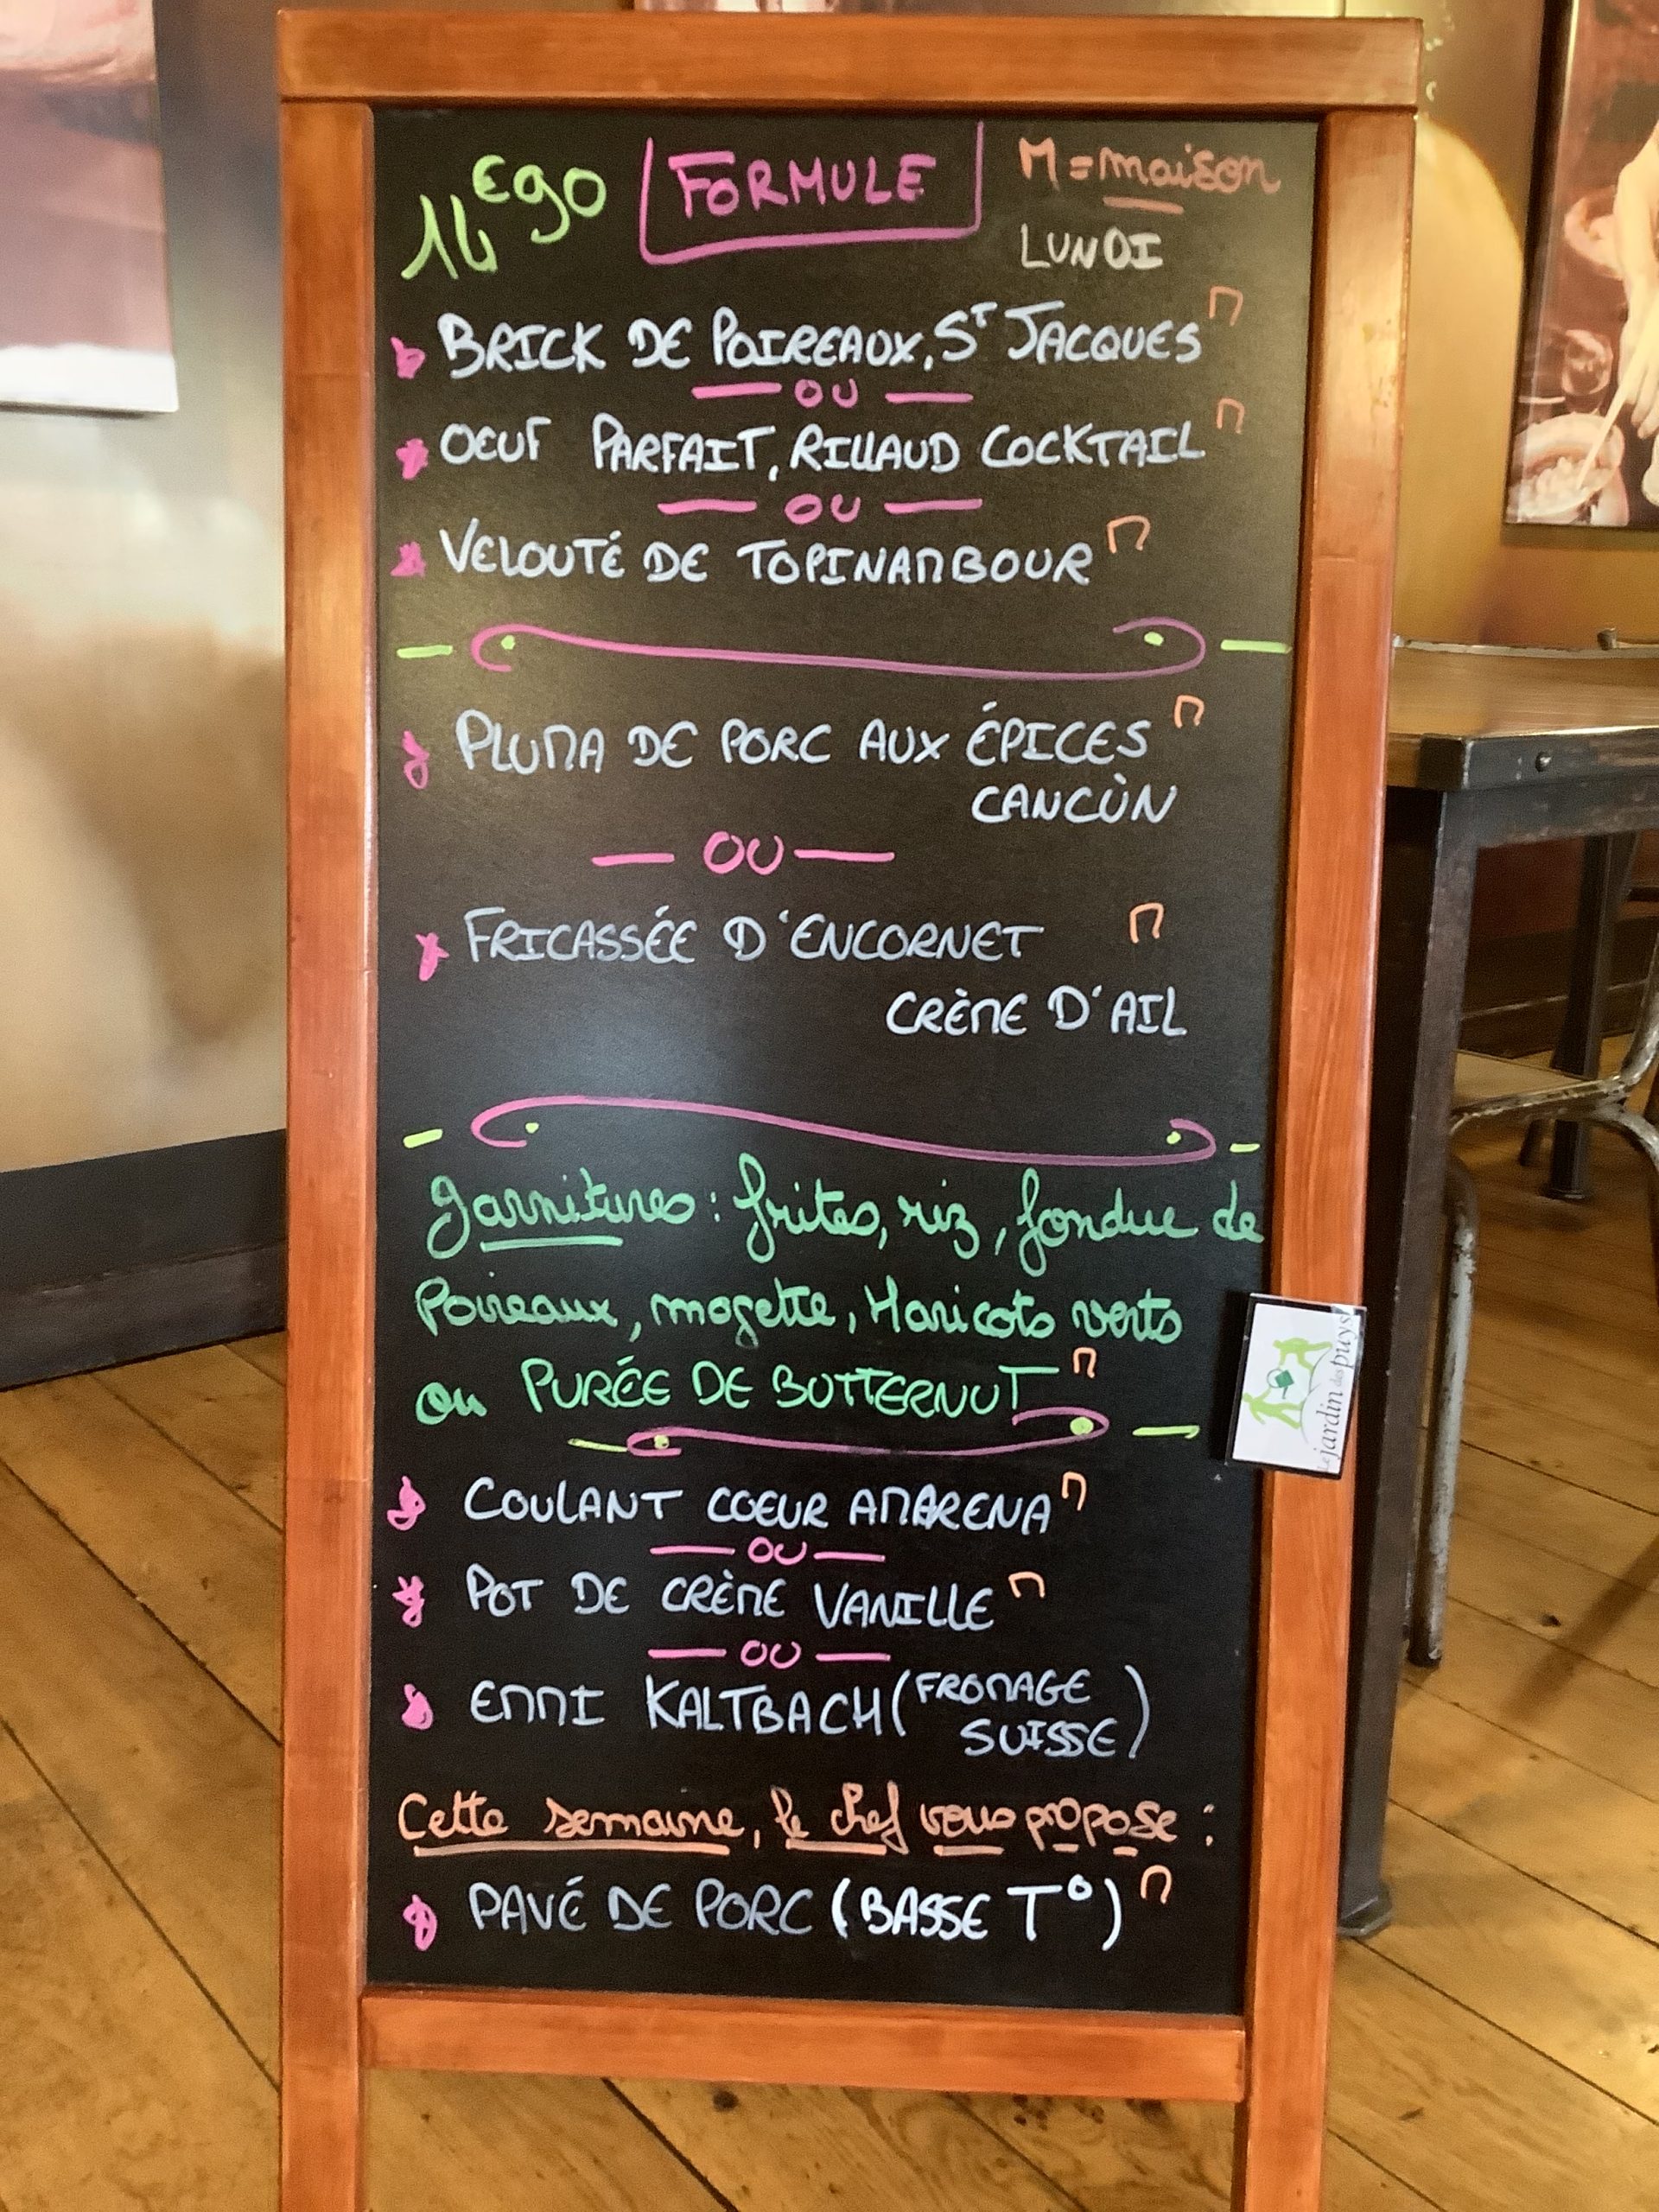 14€90 FORMULE M = maison
LUNDI
BRICK DE POIREAUX, ST JACQUES M
OU
OEUF PARFAIT, RILLAUD COCKTAIL M
OU
VELOUTÉ DE TOPINAMBOUR M
PLUMA DE PORC AUX ÉPICES M
CANCÙN
OU
FRICASSÉE D'ENCORNET M
CRÈME D'AIL
Garnitures : frites, riz, fondue de
Poireaux, mogette, Haricots verts
ou PURÉE DE BUTTERNUT M
COULANT COEUR AMARENA M
OU
POT DE CRÈME VANILLE M
OU
EMMI KALTBACH (FROMAGE
SUISSE)
Cette semaine, le chef vous propose :
PAVÉ DE PORC (BASSE T°) M
Le jardin des puys